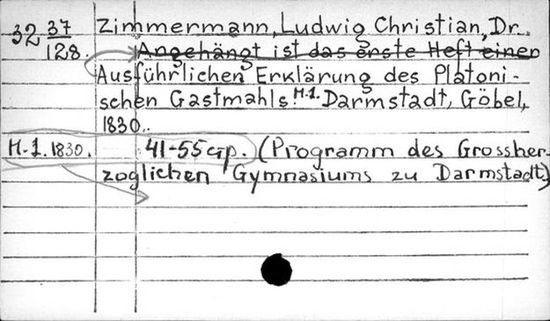 32 37/128. Zimmermann, Ludwig Christian, Dr.
Angehängt ist das erste Heft einer
Ausführlichen Erklärung des Platoni-
schen Gastmahls H.1. Darmstadt, Göbel,
1830.
H.1. 1830. 41-55 cтр. (Programm des Grossher-
zoglichen Gymnasiums zu Darmstadt)